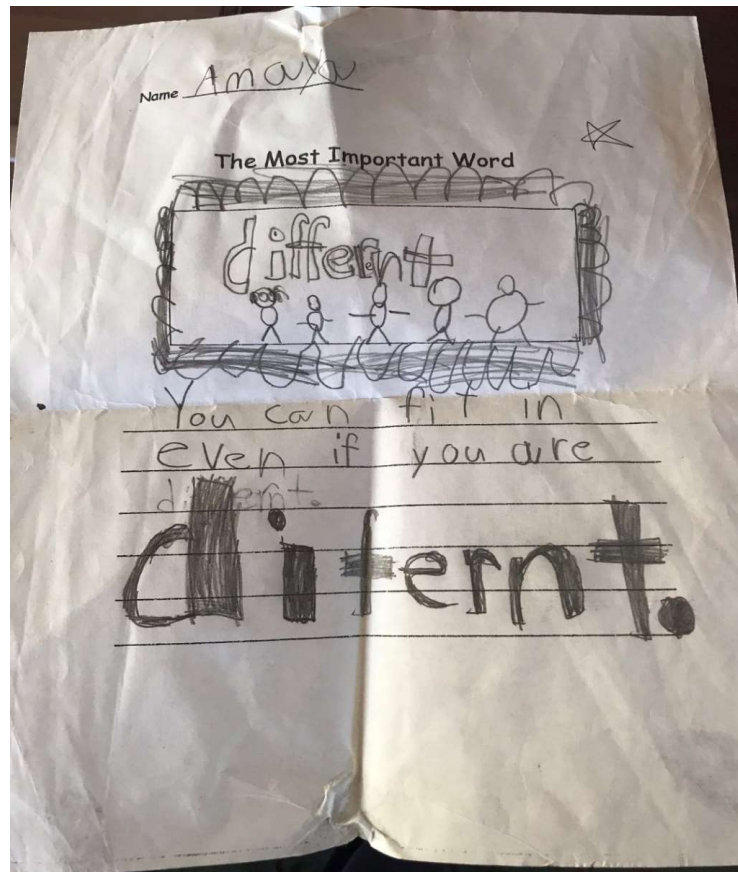 Name Amaya
The Most Important Word
differnt
You can fit in
even if you are
differnt.
difernt.